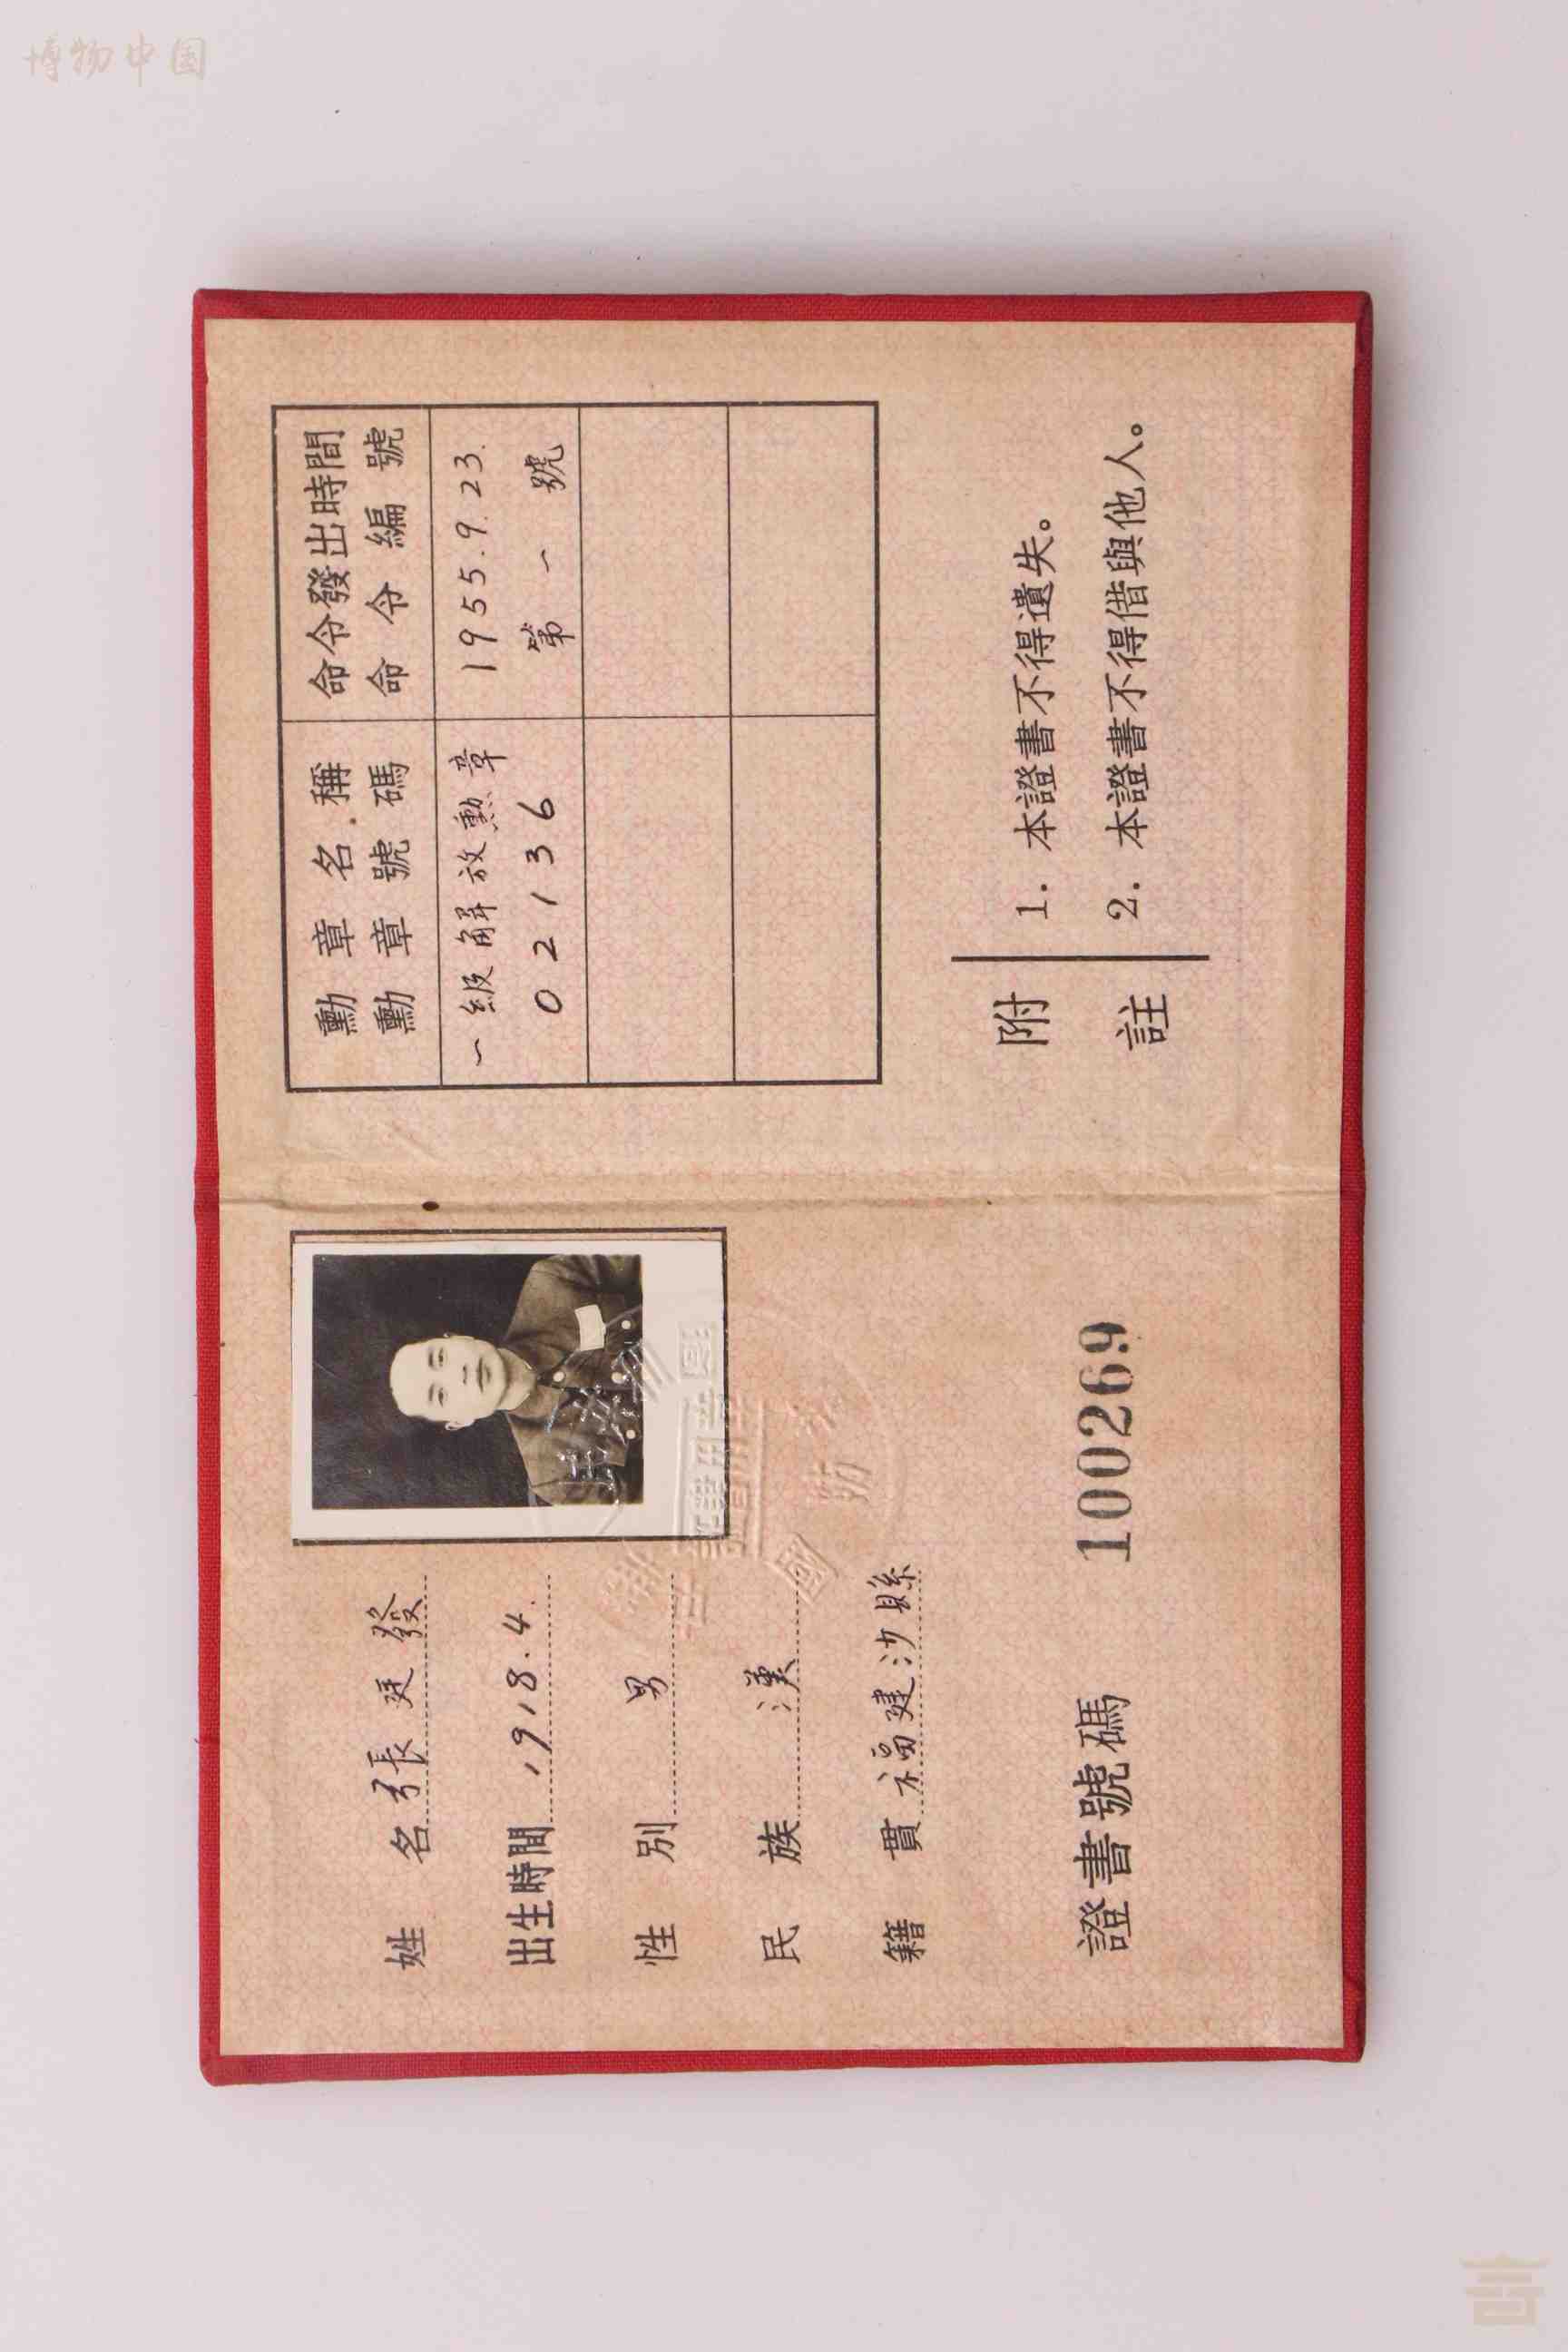 博物中国
姓名 張廷發
出生時間 1918.4.
性別 男
民族 漢
籍貫 福建沙縣
證書號碼 100269
勳章名稱 命令發出時間
勳章號碼 命令編號
一級解放勳章 1955.9.23.
02136 第一號
附註
1. 本證書不得遺失。
2. 本證書不得借與他人。